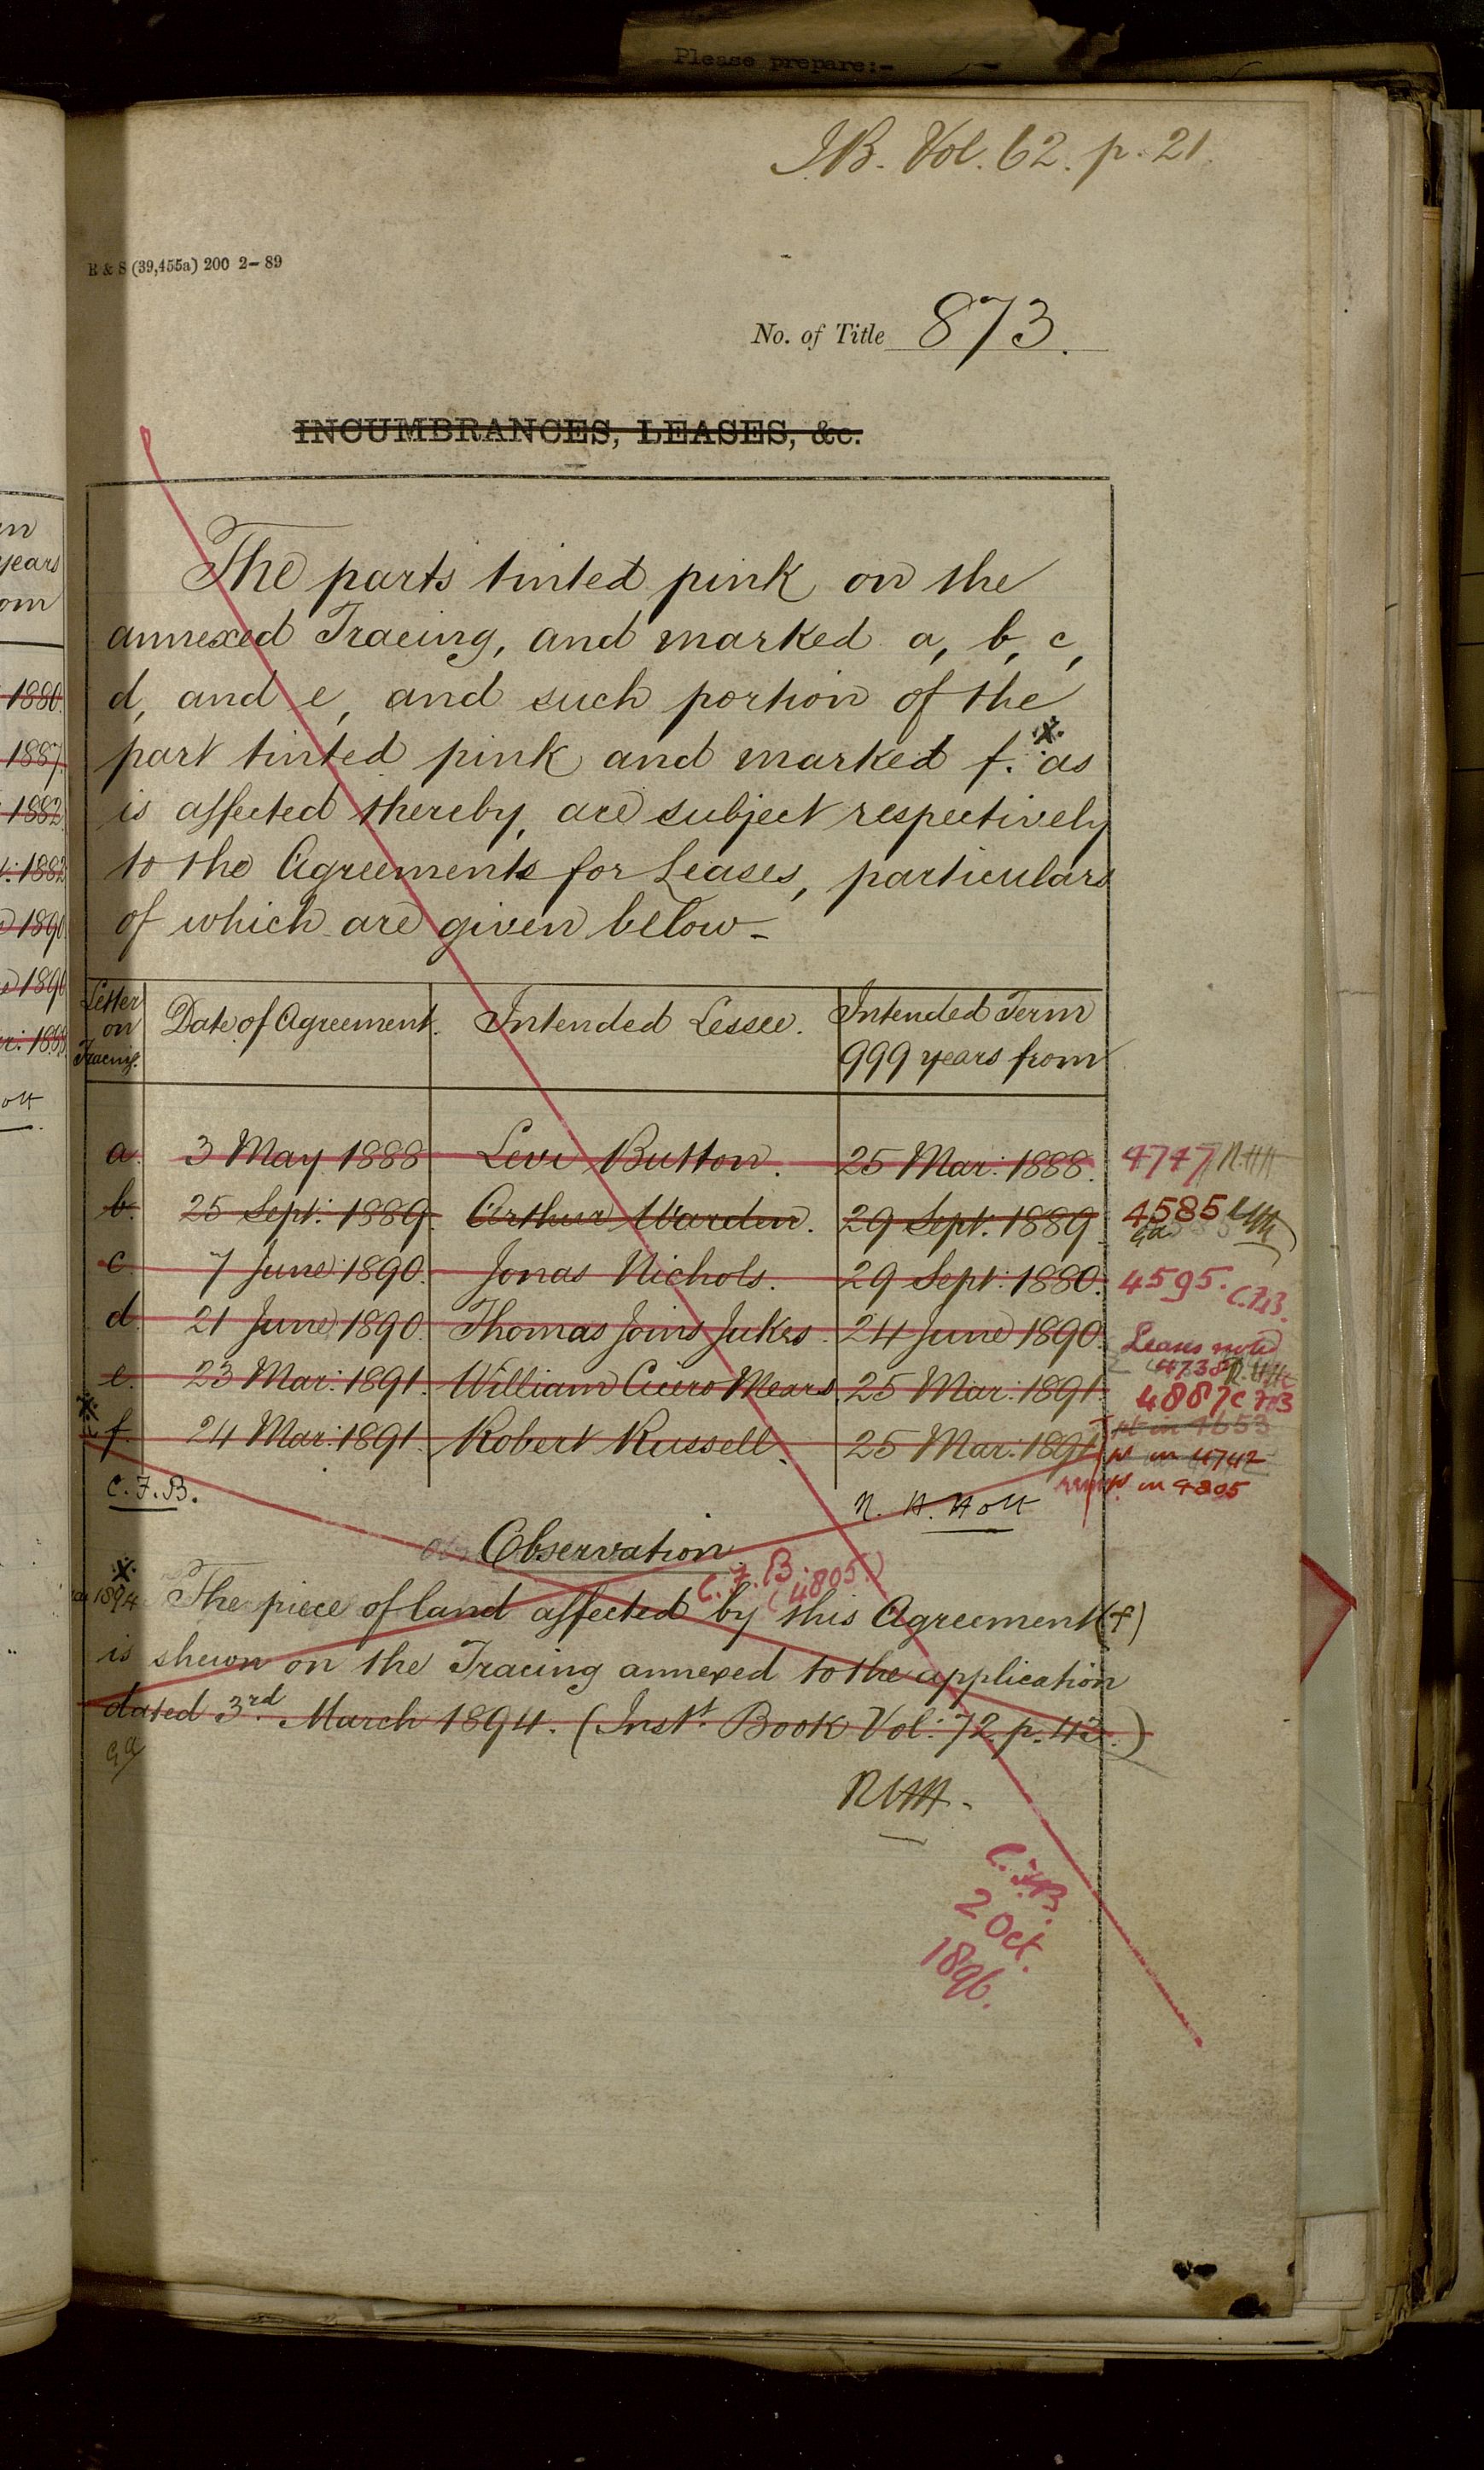 Please prepare:-
I.B. Vol. 62. p. 21.
R & S (39,455a) 200 2-89
No. of Title 873.
INCUMBRANCES, LEASES, &c.
The parts tinted pink on the
annexed Tracing, and marked a, b, c,
d, and e, and such portion of the
part tinted pink and marked f. as
is affected thereby, are subject respectively
to the Agreements for Leases, particulars
of which are given below-
Letter on Tracing. Date of Agreement. Intended Lessee. Intended Term 999 years from
a. 3 May 1888 Levi Button. 25 Mar: 1888. 4747
b. 25 Sept: 1889. Arthur Warden. 29 Sept. 1889. 4585
c. 7 June 1890. Jonas Nichols. 29 Sept: 1880. 4595. C.F.B.
d. 21 June 1890. Thomas Joins Jukes. 24 June 1890. Leases noted
4738
e. 23 Mar: 1891. William Cicero Mears. 25 Mar: 1891. 4887 C.F.B
f. 24 Mar: 1891. Robert Russell. 25 Mar: 1891 pt in 4653
pt in 4742
pt in 4805
C.F.B.
N. H. Holt
Observation
C.F.B. (4805)
1894 The piece of land affected by this Agreement (f)
is shewn on the Tracing annexed to the application
dated 3rd March 1894. (Inst. Book Vol: 72 p. 43.)
C.F.B.
2 Oct.
1896.
1880.
1887.
1882
1882
1890